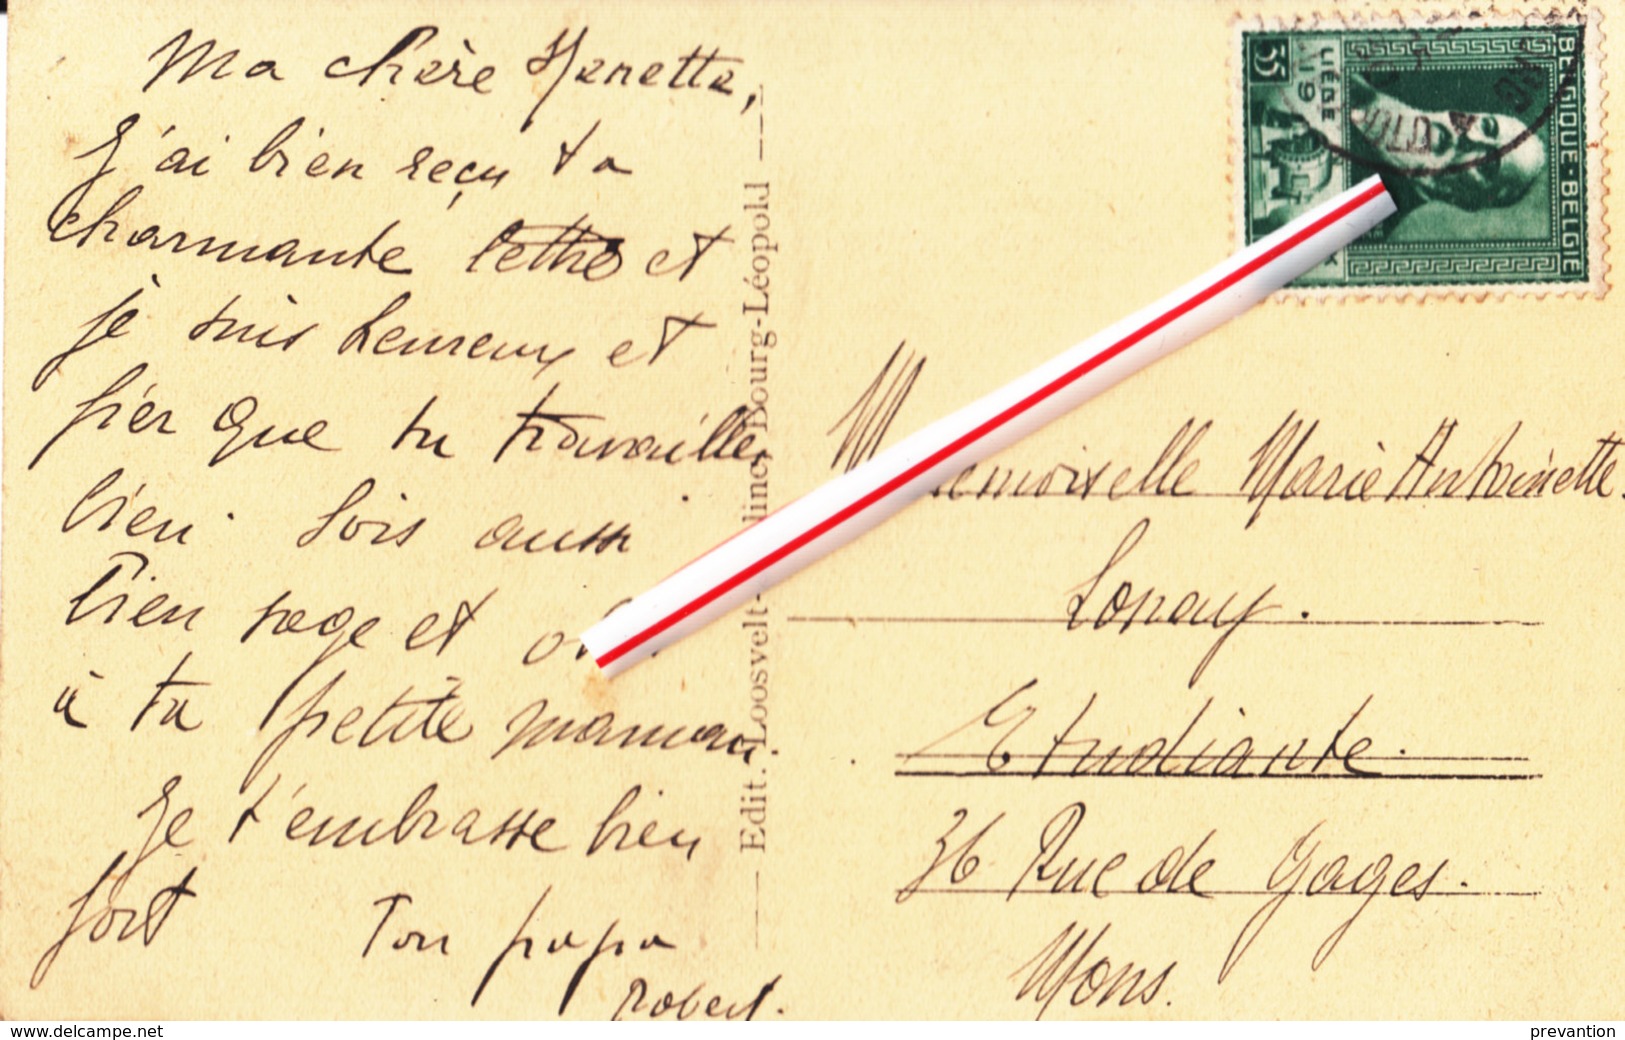 Ma chère Nanette,
J'ai bien reçu ta
charmante lettre et
je suis heureux et
fier que tu travailles
bien. Sois aussi
bien sage et
à ta petite maman.
Je t'embrasse bien
fort Ton papa
Robert.
Edit. Loosvelt- Bourg-Léopold
BELGIQUE-BELGIE
LIÉGE
35
Marie Antoinette
Lonay.
Etudiante.
36 Rue de Gages.
Mons.
www.delcampe.net
prevantion